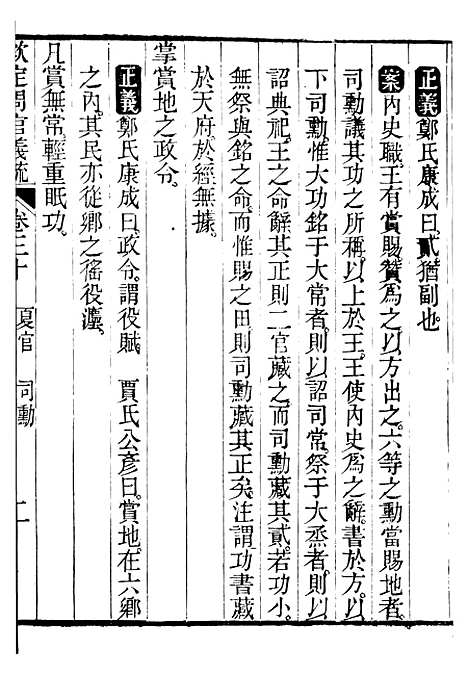 正義鄭氏康成曰。貳猶副也。
案內史職王有賞賜贊為之以方出之。六等之勳當賜地者。
司勳議其功之所稱。以上於王。王使內史為之辭。書於方。以
下司勳。惟大功銘于大常者。則以詔司常。祭于大烝者。則以
詔典祀。王之命辭其正則二官藏之。而司勳藏其貳。若功小。
無祭與銘之命。而惟賜之田。則司勳藏其正矣。注謂功書藏
於天府。於經無據。
掌賞地之政令。
正義鄭氏康成曰。政令。謂役賦　賈氏公彥曰。賞地。在六鄉
之內。其民亦從鄉之徭役灋。
凡賞無常。輕重眂功。
欽定周官義疏　卷三十　夏官　司勳　二